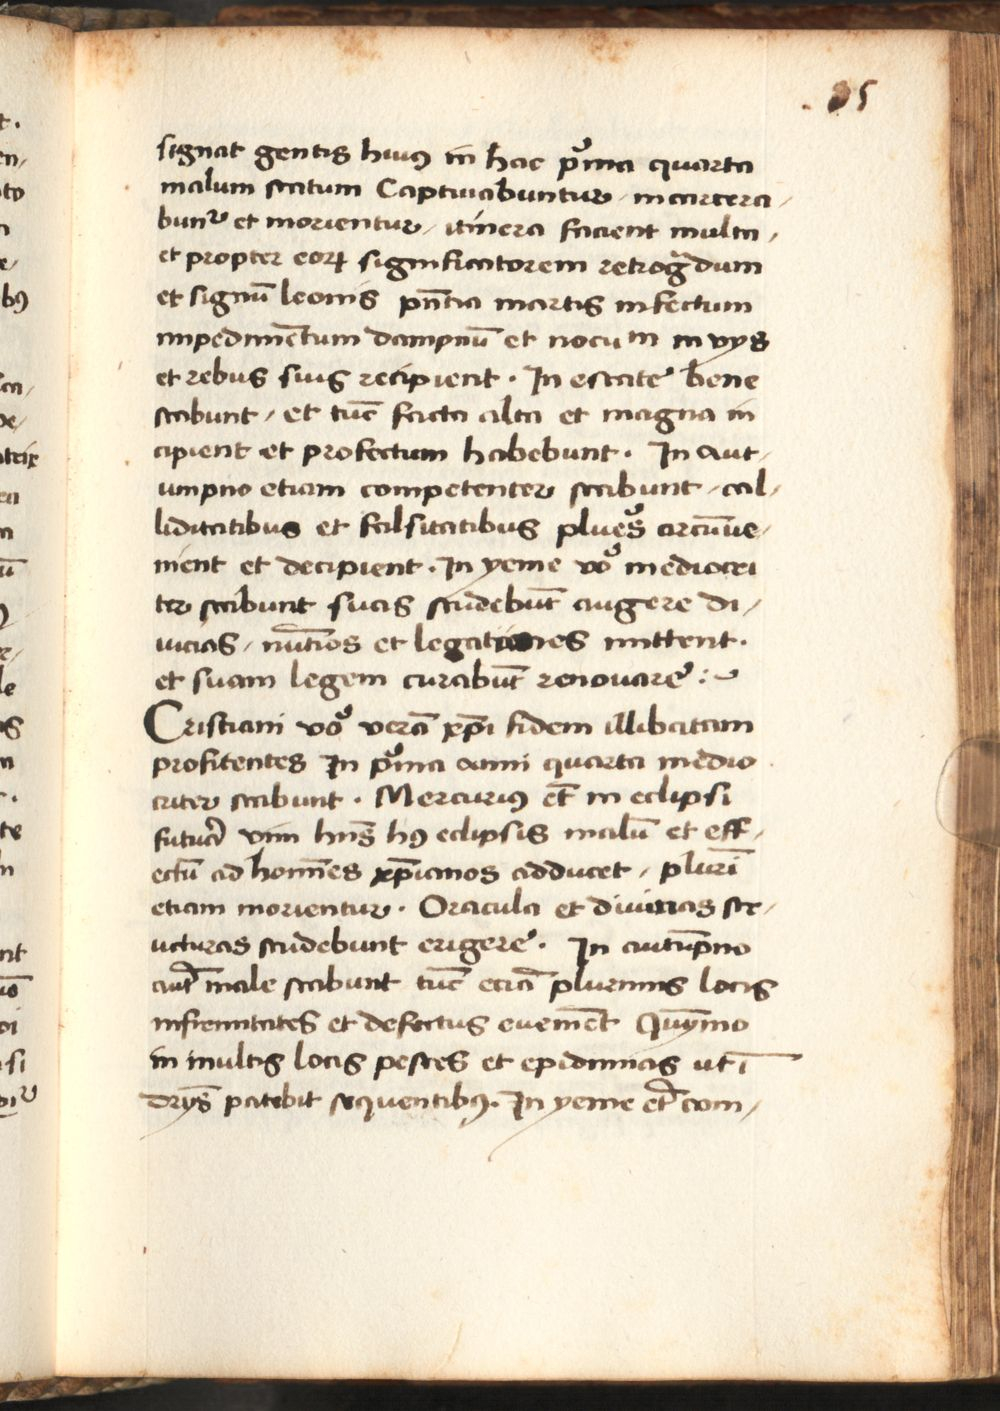 . 85
signat gentis huiꝯ in hac pͥma quarta
malum statum Captiuabuntur / incarcera /
bunͬ et morientur / itinera facient multa /
et propter eoꝝ significatorem retrogᷓdum
et signū leonis pn̄tia martis infectum
impedimētum dampnū et nocum in vijs
et rebus suis recipient . In estate bene
stabunt / et tūc facta alta et magna in
cipient et profectum habebunt . In aut /
umpno etiam competenter stabunt / cal /
liditatibus et falsitatibus plures circūue /
nient et decipient . In yeme vͦo mediocri
ter stabunt sucas studebūt augere di /
uicias / nūtios et legationes mittent .
et suam legem curabūt renouare :
Cristiani vͦo verā xp̄i fidem illibatam
profitentes In pͥma anni quarta medio
criter stabunt . Mercuriꝯ et̄ in eclipsi
futura vim hn̄s hꝯ eclipsis malū et eff /
ectū ad homīes xp̄ianos adducet / plurī
etiam morientur . Oracula et diuinas str /
ucturas studebunt erigere . In autūpno
aut̄ male stabunt tūc eciā plurimis locis
infirmitates et defectus euenīet Quȳmo
in multis locis pestes et epidimias ut ī
drijs patebit sequentibꝯ . In yeme et̄ com /